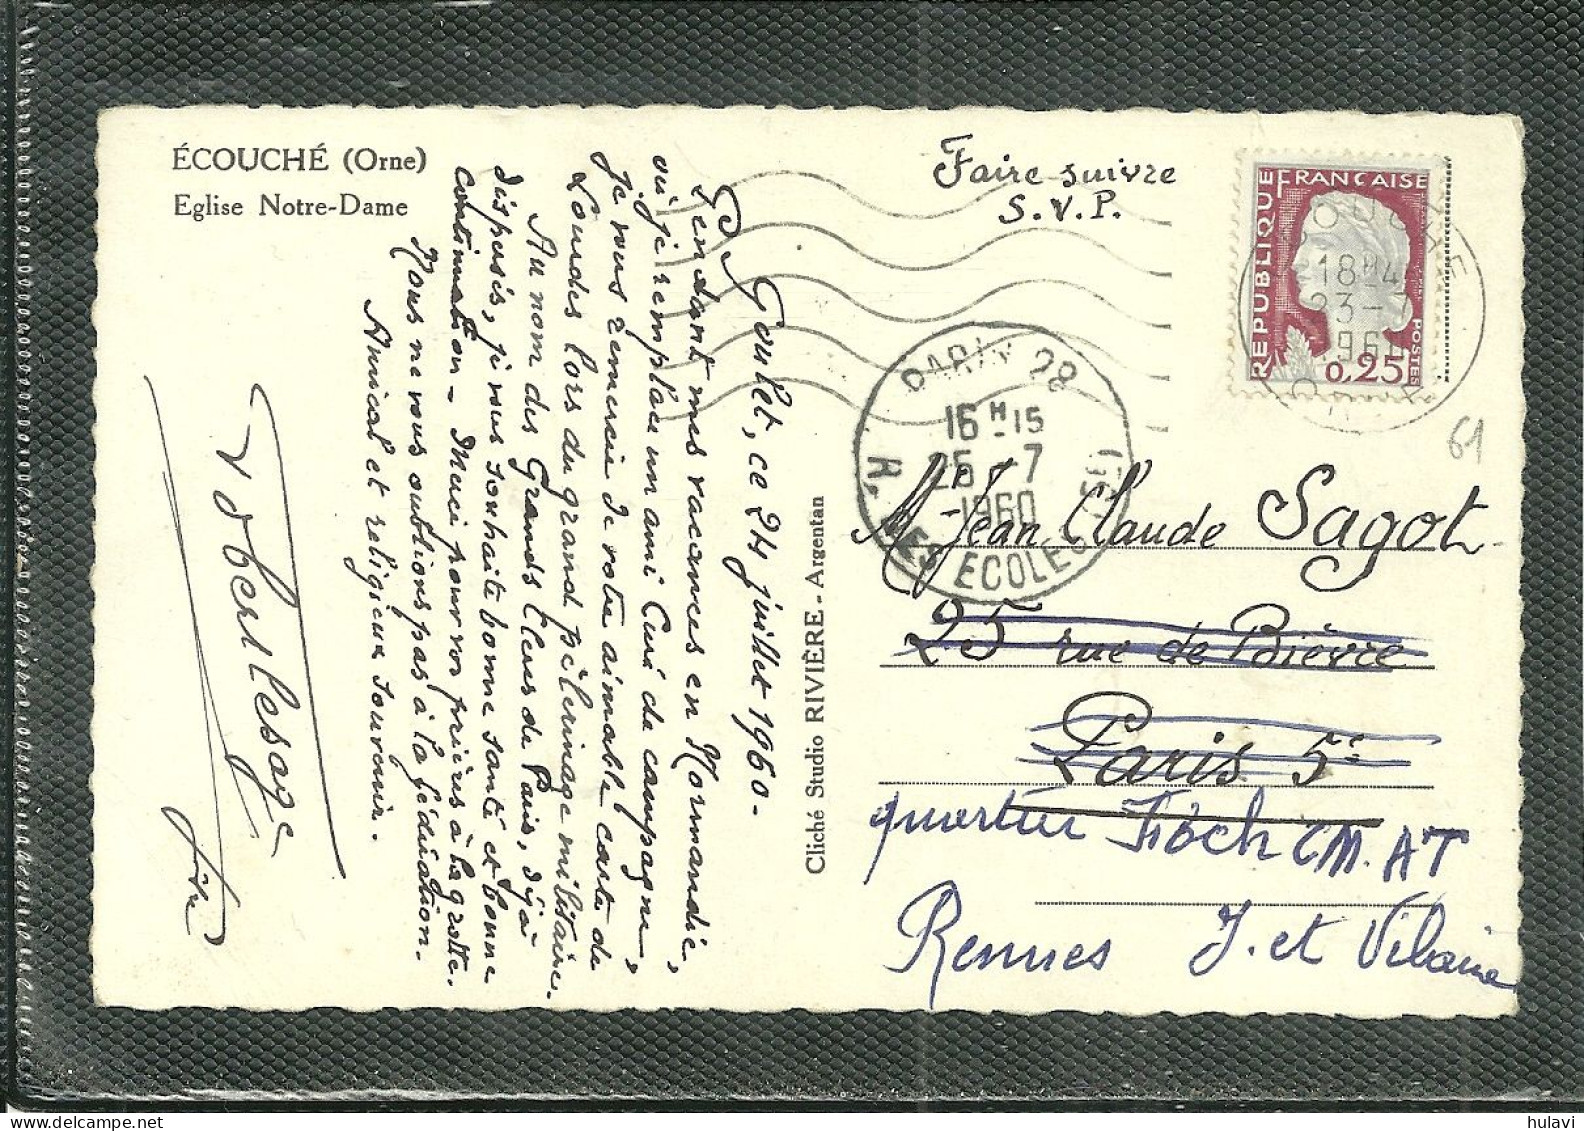 ÉCOUCHÉ (Orne)
Eglise Notre-Dame
Goulet, ce 24 juillet 1960-
Pendant mes vacances en Normandie,
où je remplace un ami Curé de campagne,
je vous remercie de votre aimable carte de
Lourdes lors du grand pèlerinage militaire.
Au nom des Grands Clercs de Paris, déjà
dispersés, je vous souhaite bonne santé et bonne
continuation - Merci pour vos prières à la grotte.
Nous ne vous oublions pas à la
Amical et religieux souvenir.
Cliché Studio RIVIÈRE - Argentan
Faire suivre
S.V.P.
REPUBLIQUE FRANÇAISE
POSTES
0,25
18H4
23-
196
PARIS 28
16H15
25-7
1960
R. DES ECOLES (5e)
61
Mr Jean Claude Sagot
25 rue de Bièvre
Paris 5e
quartier Foch CM.AT
Rennes I. et Vilaine